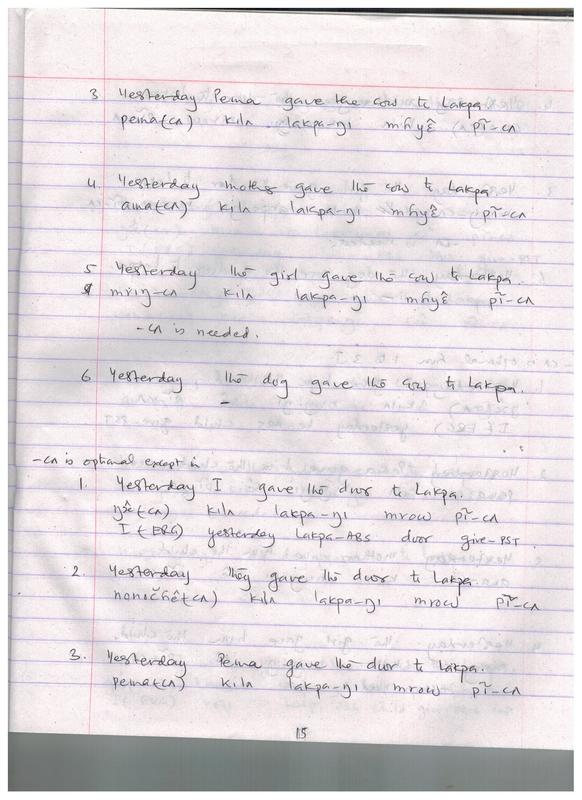 3 Yesterday Pema gave the cow to Lakpa.
pema(cʌ) kilʌ lakpa-ŋı mɦyɛ̂ pĩ-cʌ
4. Yesterday mother gave the cow to Lakpa
ama(cʌ) kilʌ lakpa-ŋı mɦyɛ̂ pĩ-cʌ
5 Yesterday the girl gave the cow to Lakpa.
mriŋ-cʌ kilʌ lakpa-ŋı mɦyɛ̂ pĩ-cʌ
-cʌ is needed.
6 Yesterday the dog gave the cow to Lakpa.
-
-cʌ is optional except in
1. Yesterday I gave the door to Lakpa.
kilʌ lakpa-ŋı mrow pĩ-cʌ
I (ERG) yesterday Lakpa-ABS door give-PST.
2. Yesterday they gave the door to Lakpa
kilʌ lakpa-ŋı mrow pĩ-cʌ
3. Yesterday Pema gave the door to Lakpa.
pema(cʌ) kilʌ lakpa-ŋı mrow pĩ-cʌ
15